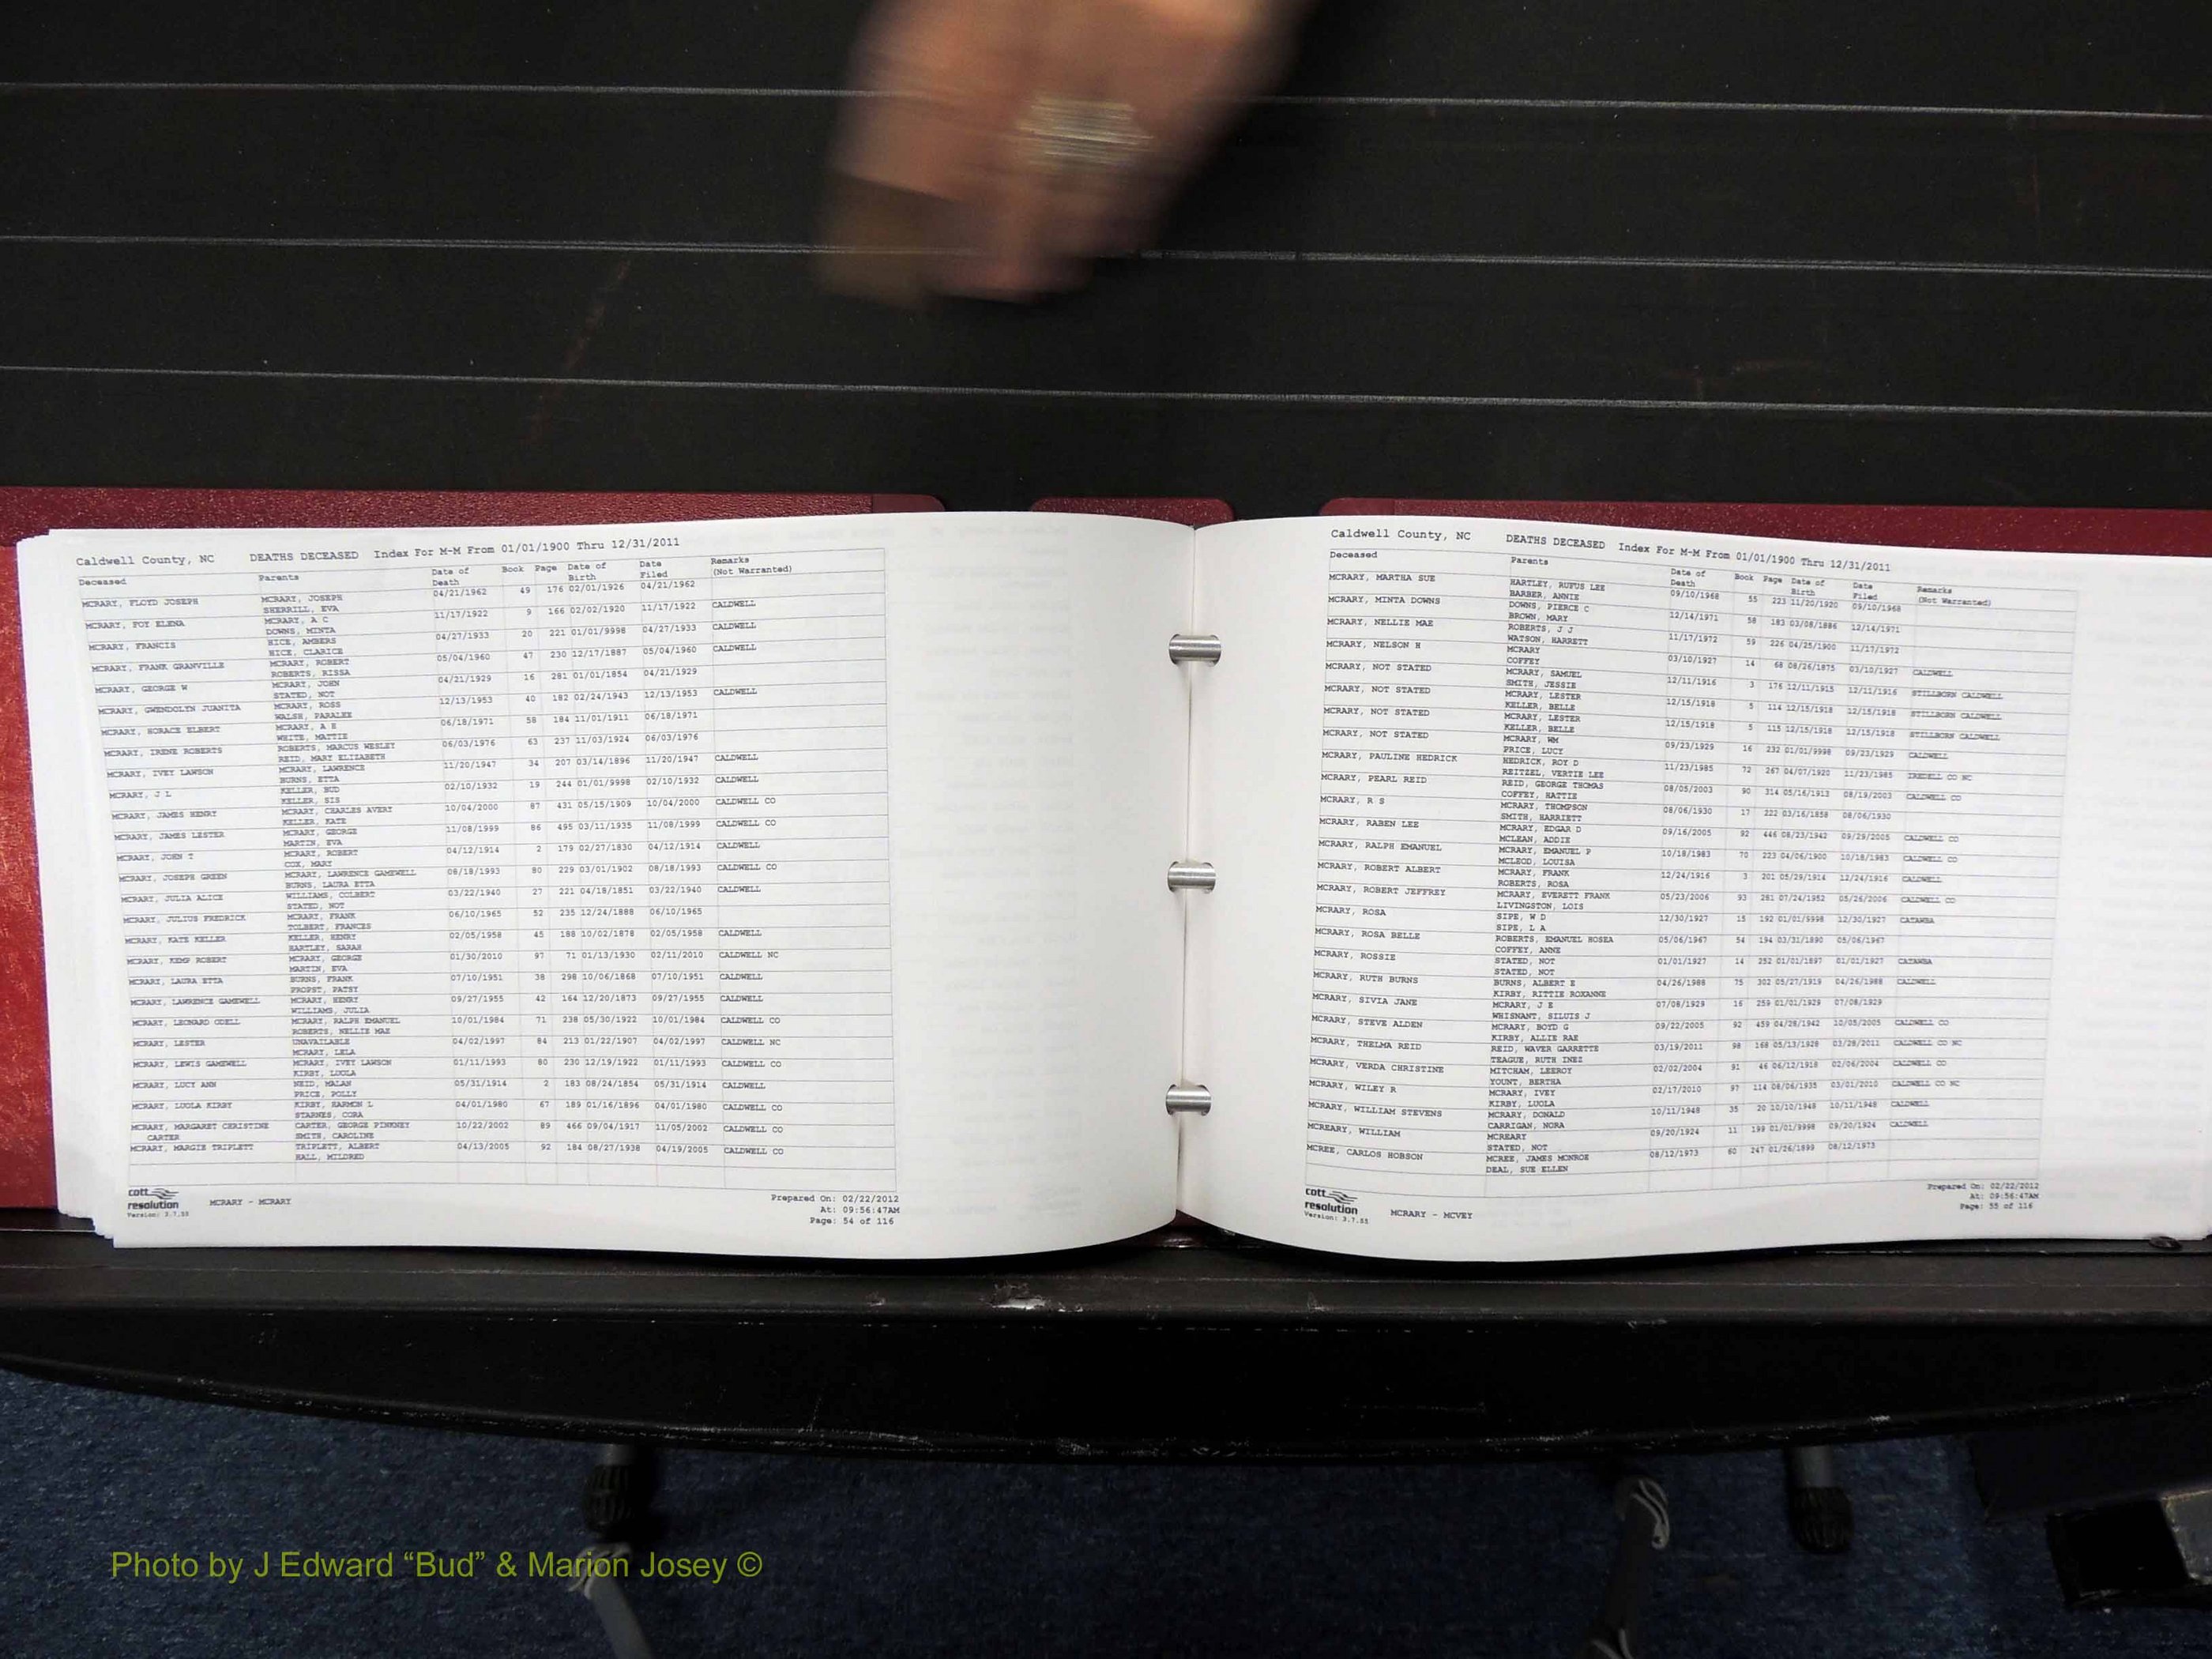 Caldwell County, NC DEATHS DECEASED Index For M-M From 01/01/1900 Thru 12/31/2011
Deceased Parents Date of Death Book Page Date of Birth Date Filed Remarks (Not Warranted)
MCRARY, FLOYD JOSEPH MCRARY, JOSEPH 04/21/1962 49 176 02/01/1926 04/21/1962
SHERRILL, EVA
MCRARY, FOY ELENA MCRARY, A C 11/17/1922 9 166 02/02/1920 11/17/1922 CALDWELL
DOWNS, MINTA
MCRARY, FRANCIS HICE, AMBERS 04/27/1933 20 221 01/01/9998 04/27/1933 CALDWELL
HICE, CLARICE
MCRARY, FRANK GRANVILLE MCRARY, ROBERT 05/04/1960 47 230 12/17/1887 05/04/1960 CALDWELL
ROBERTS, RISSA
MCRARY, GEORGE W MCRARY, JOHN 04/21/1929 16 281 01/01/1854 04/21/1929
STATED, NOT
MCRARY, GWENDOLYN JUANITA MCRARY, ROSS 12/13/1953 40 182 02/24/1943 12/13/1953 CALDWELL
WALSH, PARALEE
MCRARY, HORACE ELBERT MCRARY, A E 06/18/1971 58 184 11/01/1911 06/18/1971
WHITE, MATTIE
MCRARY, IRENE ROBERTS ROBERTS, MARCUS WESLEY 06/03/1976 63 237 11/03/1924 06/03/1976
REID, MARY ELIZABETH
MCRARY, IVEY LAWSON MCRARY, LAWRENCE 11/20/1947 34 207 03/14/1896 11/20/1947 CALDWELL
BURNS, ETTA
MCRARY, J L KELLER, BUD 02/10/1932 19 244 01/01/9998 02/10/1932 CALDWELL
KELLER, SIS
MCRARY, JAMES HENRY MCRARY, CHARLES AVERY 10/04/2000 87 431 05/15/1909 10/04/2000 CALDWELL CO
KELLER, KATE
MCRARY, JAMES LESTER MCRARY, GEORGE 11/08/1999 86 495 03/11/1935 11/08/1999 CALDWELL CO
MARTIN, EVA
MCRARY, JOHN T MCRARY, ROBERT 04/12/1914 2 179 02/27/1830 04/12/1914 CALDWELL
COX, MARY
MCRARY, JOSEPH GREEN MCRARY, LAWRENCE GAMEWELL 08/18/1993 80 229 03/01/1902 08/18/1993 CALDWELL CO
BURNS, LAURA ETTA
MCRARY, JULIA ALICE WILLIAMS, COLBERT 03/22/1940 27 221 04/18/1851 03/22/1940 CALDWELL
STATED, NOT
MCRARY, JULIUS FREDRICK MCRARY, FRANK 06/10/1965 52 235 12/24/1888 06/10/1965
TOLBERT, FRANCES
MCRARY, KATE KELLER KELLER, HENRY 02/05/1958 45 188 10/02/1878 02/05/1958 CALDWELL
HARTLEY, SARAH
MCRARY, KEMP ROBERT MCRARY, GEORGE 01/30/2010 97 71 01/13/1930 02/11/2010 CALDWELL NC
MARTIN, EVA
MCRARY, LAURA ETTA BURNS, FRANK 07/10/1951 38 298 10/06/1868 07/10/1951 CALDWELL
PROPST, PATSY
MCRARY, LAWRENCE GAMEWELL MCRARY, HENRY 09/27/1955 42 164 12/20/1873 09/27/1955 CALDWELL
WILLIAMS, JULIA
MCRARY, LEONARD ODELL MCRARY, RALPH EMANUEL 10/01/1984 71 238 05/30/1922 10/01/1984 CALDWELL CO
ROBERTS, NELLIE MAE
MCRARY, LESTER UNAVAILABLE 04/02/1997 84 213 01/22/1907 04/02/1997 CALDWELL NC
MCRARY, LELA
MCRARY, LEWIS GAMEWELL MCRARY, IVEY LAWSON 01/11/1993 80 230 12/19/1922 01/11/1993 CALDWELL CO
KIRBY, LUOLA
MCRARY, LUCY ANN REID, MALAN 05/31/1914 2 183 08/24/1854 05/31/1914 CALDWELL
PRICE, POLLY
MCRARY, LUOLA KIRBY KIRBY, HARMON L 04/01/1980 67 189 01/16/1896 04/01/1980 CALDWELL CO
STARNES, CORA
MCRARY, MARGARET CHRISTINE CARTER, GEORGE PINKNEY 10/22/2002 89 466 09/04/1917 11/05/2002 CALDWELL CO
CARTER SMITH, CAROLINE
MCRARY, MARGIE TRIPLETT TRIPLETT, ALBERT 04/13/2005 92 184 08/27/1938 04/19/2005 CALDWELL CO
HALL, MILDRED
cott resolution
Version: 3.7.55
MCRARY - MCRARY
Prepared On: 02/22/2012
At: 09:56:47AM
Page: 54 of 116
Caldwell County, NC DEATHS DECEASED Index For M-M From 01/01/1900 Thru 12/31/2011
Deceased Parents Date of Death Book Page Date of Birth Date Filed Remarks (Not Warranted)
MCRARY, MARTHA SUE HARTLEY, RUFUS LEE 09/10/1968 55 223 11/20/1920 09/10/1968
BARBER, ANNIE
MCRARY, MINTA DOWNS DOWNS, PIERCE C 12/14/1971 58 183 03/08/1886 12/14/1971
BROWN, MARY
MCRARY, NELLIE MAE ROBERTS, J J 11/17/1972 59 226 04/25/1900 11/17/1972
WATSON, HARRETT
MCRARY, NELSON H MCRARY 03/10/1927 14 68 08/26/1875 03/10/1927 CALDWELL
COFFEY
MCRARY, NOT STATED MCRARY, SAMUEL 12/11/1916 3 176 12/11/1915 12/11/1916 STILLBORN CALDWELL
SMITH, JESSIE
MCRARY, NOT STATED MCRARY, LESTER 12/15/1918 5 114 12/15/1918 12/15/1918 STILLBORN CALDWELL
KELLER, BELLE
MCRARY, NOT STATED MCRARY, LESTER 12/15/1918 5 115 12/15/1918 12/15/1918 STILLBORN CALDWELL
KELLER, BELLE
MCRARY, NOT STATED MCRARY, WM 09/23/1929 16 232 01/01/9998 09/23/1929 CALDWELL
PRICE, LUCY
MCRARY, PAULINE HEDRICK HEDRICK, ROY D 11/23/1985 72 267 04/07/1920 11/23/1985 IREDELL CO NC
REITZEL, VERTIE LEE
MCRARY, PEARL REID REID, GEORGE THOMAS 08/05/2003 90 314 05/16/1913 08/19/2003 CALDWELL CO
COFFEY, HATTIE
MCRARY, R S MCRARY, THOMPSON 08/06/1930 17 222 03/16/1858 08/06/1930
SMITH, HARRIETT
MCRARY, RABEN LEE MCRARY, EDGAR D 09/16/2005 92 446 08/23/1942 09/29/2005 CALDWELL CO
MCLEAN, ADDIE
MCRARY, RALPH EMANUEL MCRARY, EMANUEL P 10/18/1983 70 223 04/06/1900 10/18/1983 CALDWELL CO
MCLEOD, LOUISA
MCRARY, ROBERT ALBERT MCRARY, FRANK 12/24/1916 3 201 05/29/1914 12/24/1916 CALDWELL
ROBERTS, ROSA
MCRARY, ROBERT JEFFREY MCRARY, EVERETT FRANK 05/23/2006 93 281 07/24/1952 05/26/2006 CALDWELL CO
LIVINGSTON, LOIS
MCRARY, ROSA SIPE, W D 12/30/1927 15 192 01/01/9998 12/30/1927 CATAWBA
SIPE, L A
MCRARY, ROSA BELLE ROBERTS, EMANUEL HOSEA 05/06/1967 54 194 03/31/1890 05/06/1967
COFFEY, ANNE
MCRARY, ROSSIE STATED, NOT 01/01/1927 14 252 01/01/1897 01/01/1927 CATAWBA
STATED, NOT
MCRARY, RUTH BURNS BURNS, ALBERT E 04/26/1988 75 302 05/27/1919 04/26/1988 CALDWELL
KIRBY, RITTIE ROXANNE
MCRARY, SIVIA JANE MCRARY, J E 07/08/1929 16 259 01/01/1929 07/08/1929
WHISNANT, SILUIS J
MCRARY, STEVE ALDEN MCRARY, BOYD G 09/22/2005 92 459 04/28/1942 10/05/2005 CALDWELL CO
KIRBY, ALLIE RAE
MCRARY, THELMA REID REID, WAVER GARRETTE 03/19/2011 98 168 05/13/1928 03/28/2011 CALDWELL CO NC
TEAGUE, RUTH INEZ
MCRARY, VERDA CHRISTINE MITCHAM, LEEROY 02/02/2004 91 46 06/12/1918 02/06/2004 CALDWELL CO
YOUNT, BERTHA
MCRARY, WILEY R MCRARY, IVEY 02/17/2010 97 114 08/06/1935 03/01/2010 CALDWELL CO NC
KIRBY, LUOLA
MCRARY, WILLIAM STEVENS MCRARY, DONALD 10/11/1948 35 20 10/10/1948 10/11/1948 CALDWELL
CARRIGAN, NORA
MCREARY, WILLIAM MCREARY 09/20/1924 11 199 01/01/9998 09/20/1924 CALDWELL
STATED, NOT
MCREE, CARLOS HOBSON MCREE, JAMES MONROE 08/12/1973 60 247 01/26/1899 08/12/1973
DEAL, SUE ELLEN
cott resolution
Version: 3.7.55
MCRARY - MCVEY
Prepared On: 02/22/2012
At: 09:56:47AM
Page: 55 of 116
Photo by J Edward “Bud” & Marion Josey ©